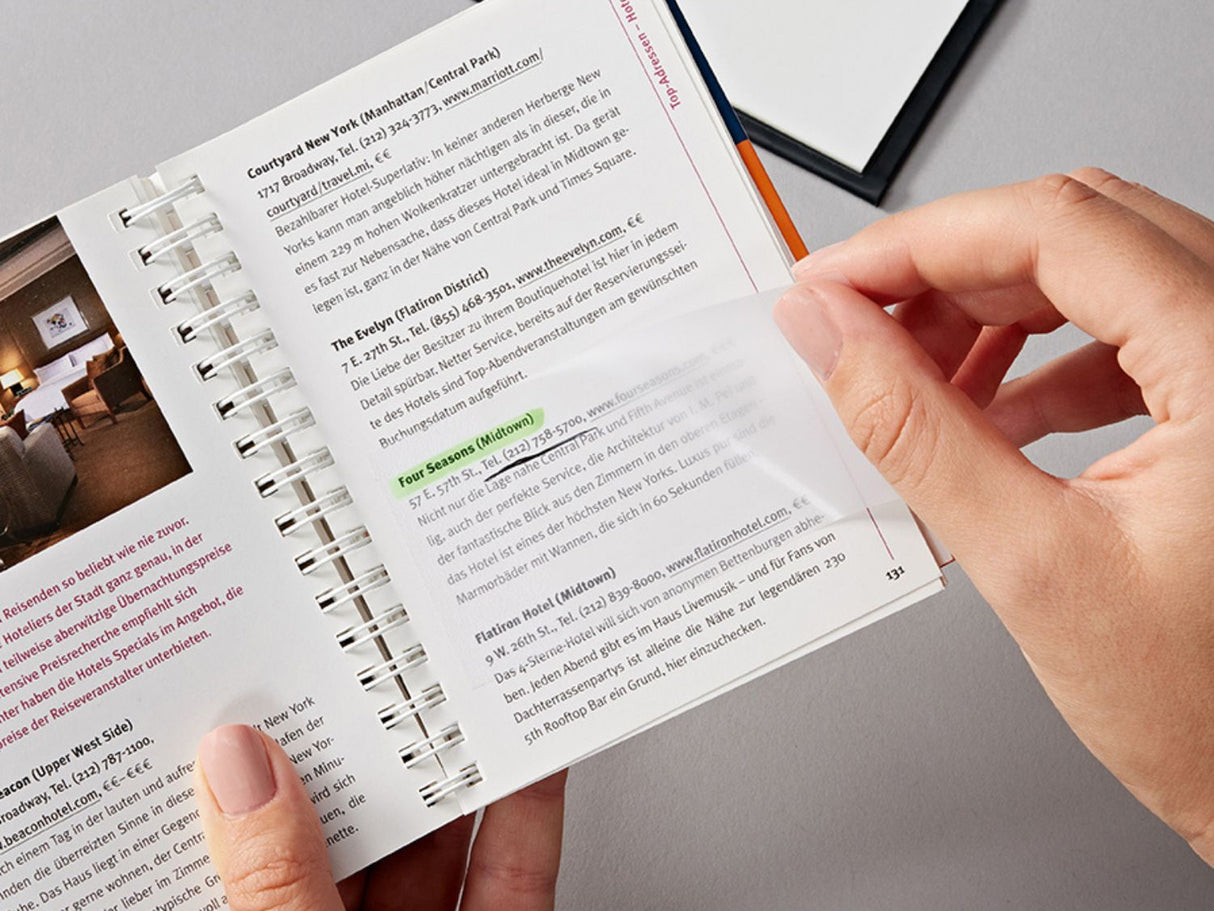 Reisenden so beliebt wie nie zuvor.
Hoteliers der Stadt ganz genau, in der
teilweise aberwitzige Übernachtungspreise
tensive Preisrecherche empfiehlt sich
haben die Hotels Specials im Angebot, die
preise der Reiseveranstalter unterbieten.
eacon (Upper West Side)
roadway, Tel. (212) 787-1100,
w.beaconhotel.com, €€–€€€
ch einem Tag in der lauten und aufre
lt New York
inden die überreizten Sinne in diese
afen der
uhe. Das Haus liegt in einer Gegen
New Yor-
er gerne wohnen, der Centr
en Minu-
er lieber im Zimme
wird sich
typische Gr
uen, die
voll a
nette.
Top-Adressen – Hote
Courtyard New York (Manhattan/Central Park)
1717 Broadway, Tel. (212) 324-3773, www.marriott.com/
courtyard/travel.mi, €€
Bezahlbarer Hotel-Superlativ: In keiner anderen Herberge New
Yorks kann man angeblich höher nächtigen als in dieser, die in
einem 229 m hohen Wolkenkratzer untergebracht ist. Da gerät
es fast zur Nebensache, dass dieses Hotel ideal in Midtown ge-
legen ist, ganz in der Nähe von Central Park und Times Square.
The Evelyn (Flatiron District)
7 E. 27th St., Tel. (855) 468-3501, www.theevelyn.com, €€
Die Liebe der Besitzer zu ihrem Boutiquehotel ist hier in jedem
Detail spürbar. Netter Service, bereits auf der Reservierungssei-
te des Hotels sind Top-Abendveranstaltungen am gewünschten
Buchungsdatum aufgeführt.
Four Seasons (Midtown)
57 E. 57th St., Tel. (212) 758-5700, www.fourseasons.com, €€€
Nicht nur die Lage nahe Central Park und Fifth Avenue ist
lig, auch der perfekte Service, die Architektur von I. M. Pei und
der fantastische Blick aus den Zimmern in den oberen Etagen –
das Hotel ist eines der höchsten New Yorks. Luxus pur sind die
Marmorbäder mit Wannen, die sich in 60 Sekunden füllen.
Flatiron Hotel (Midtown)
9 W. 26th St., Tel. (212) 839-8000, www.flatironhotel.com, €€
Das 4-Sterne-Hotel will sich von anonymen Bettenburgen abhe-
ben. Jeden Abend gibt es im Haus Livemusik – und für Fans von
Dachterrassenpartys ist alleine die Nähe zur legendären 230
5th Rooftop Bar ein Grund, hier einzuchecken.
131